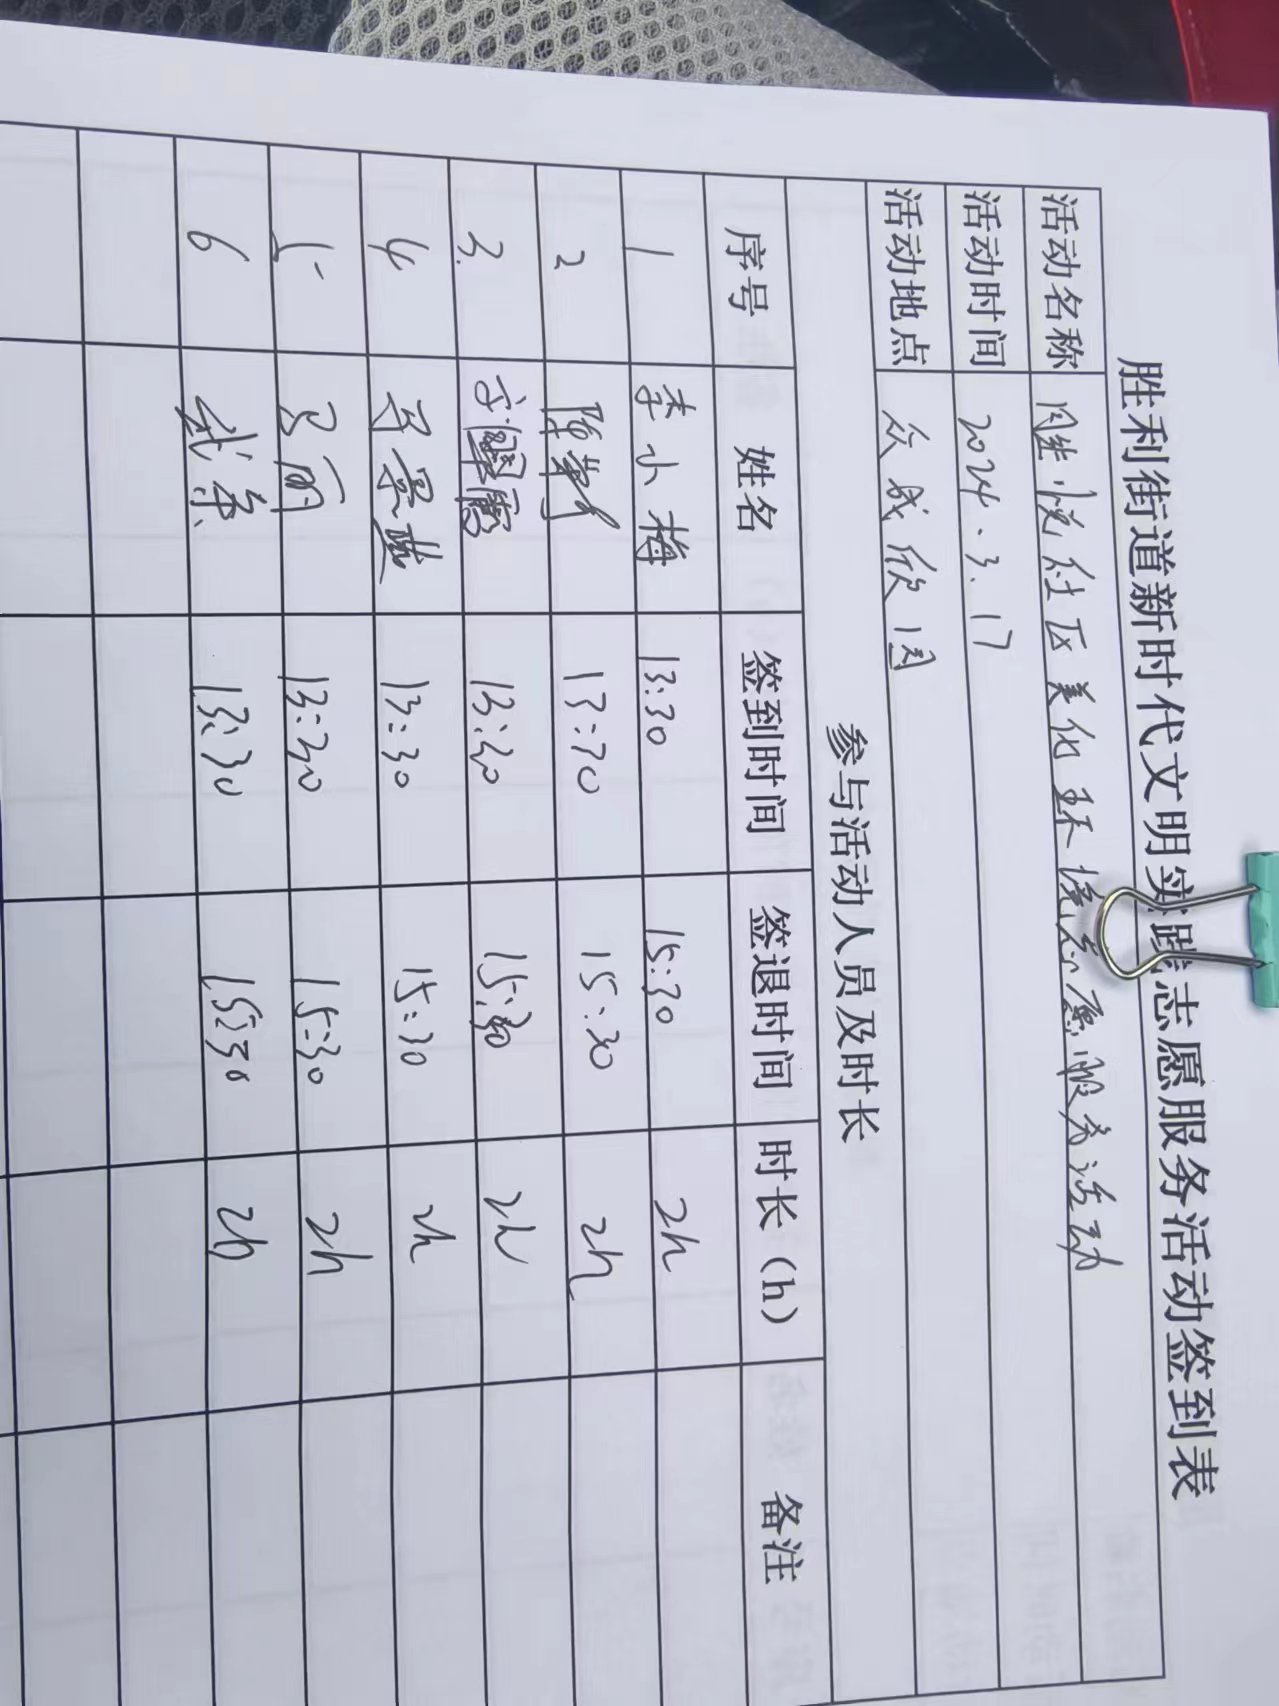 胜利街道新时代文明实践志愿服务活动签到表
活动名称 胜悦社区美化环境志愿服务活动
活动时间 2024.3.17
活动地点 众成欣园
参与活动人员及时长
序号 姓名 签到时间 签退时间 时长（h） 备注
1 李小梅 13:30 15:30 2h
2 陈 13:30 15:30 2h
3. 13:30 15:30 2h
4 13:30 15:30 2h
5 马丽 13:30 15:30 2h
6 13:30 15:30 2h